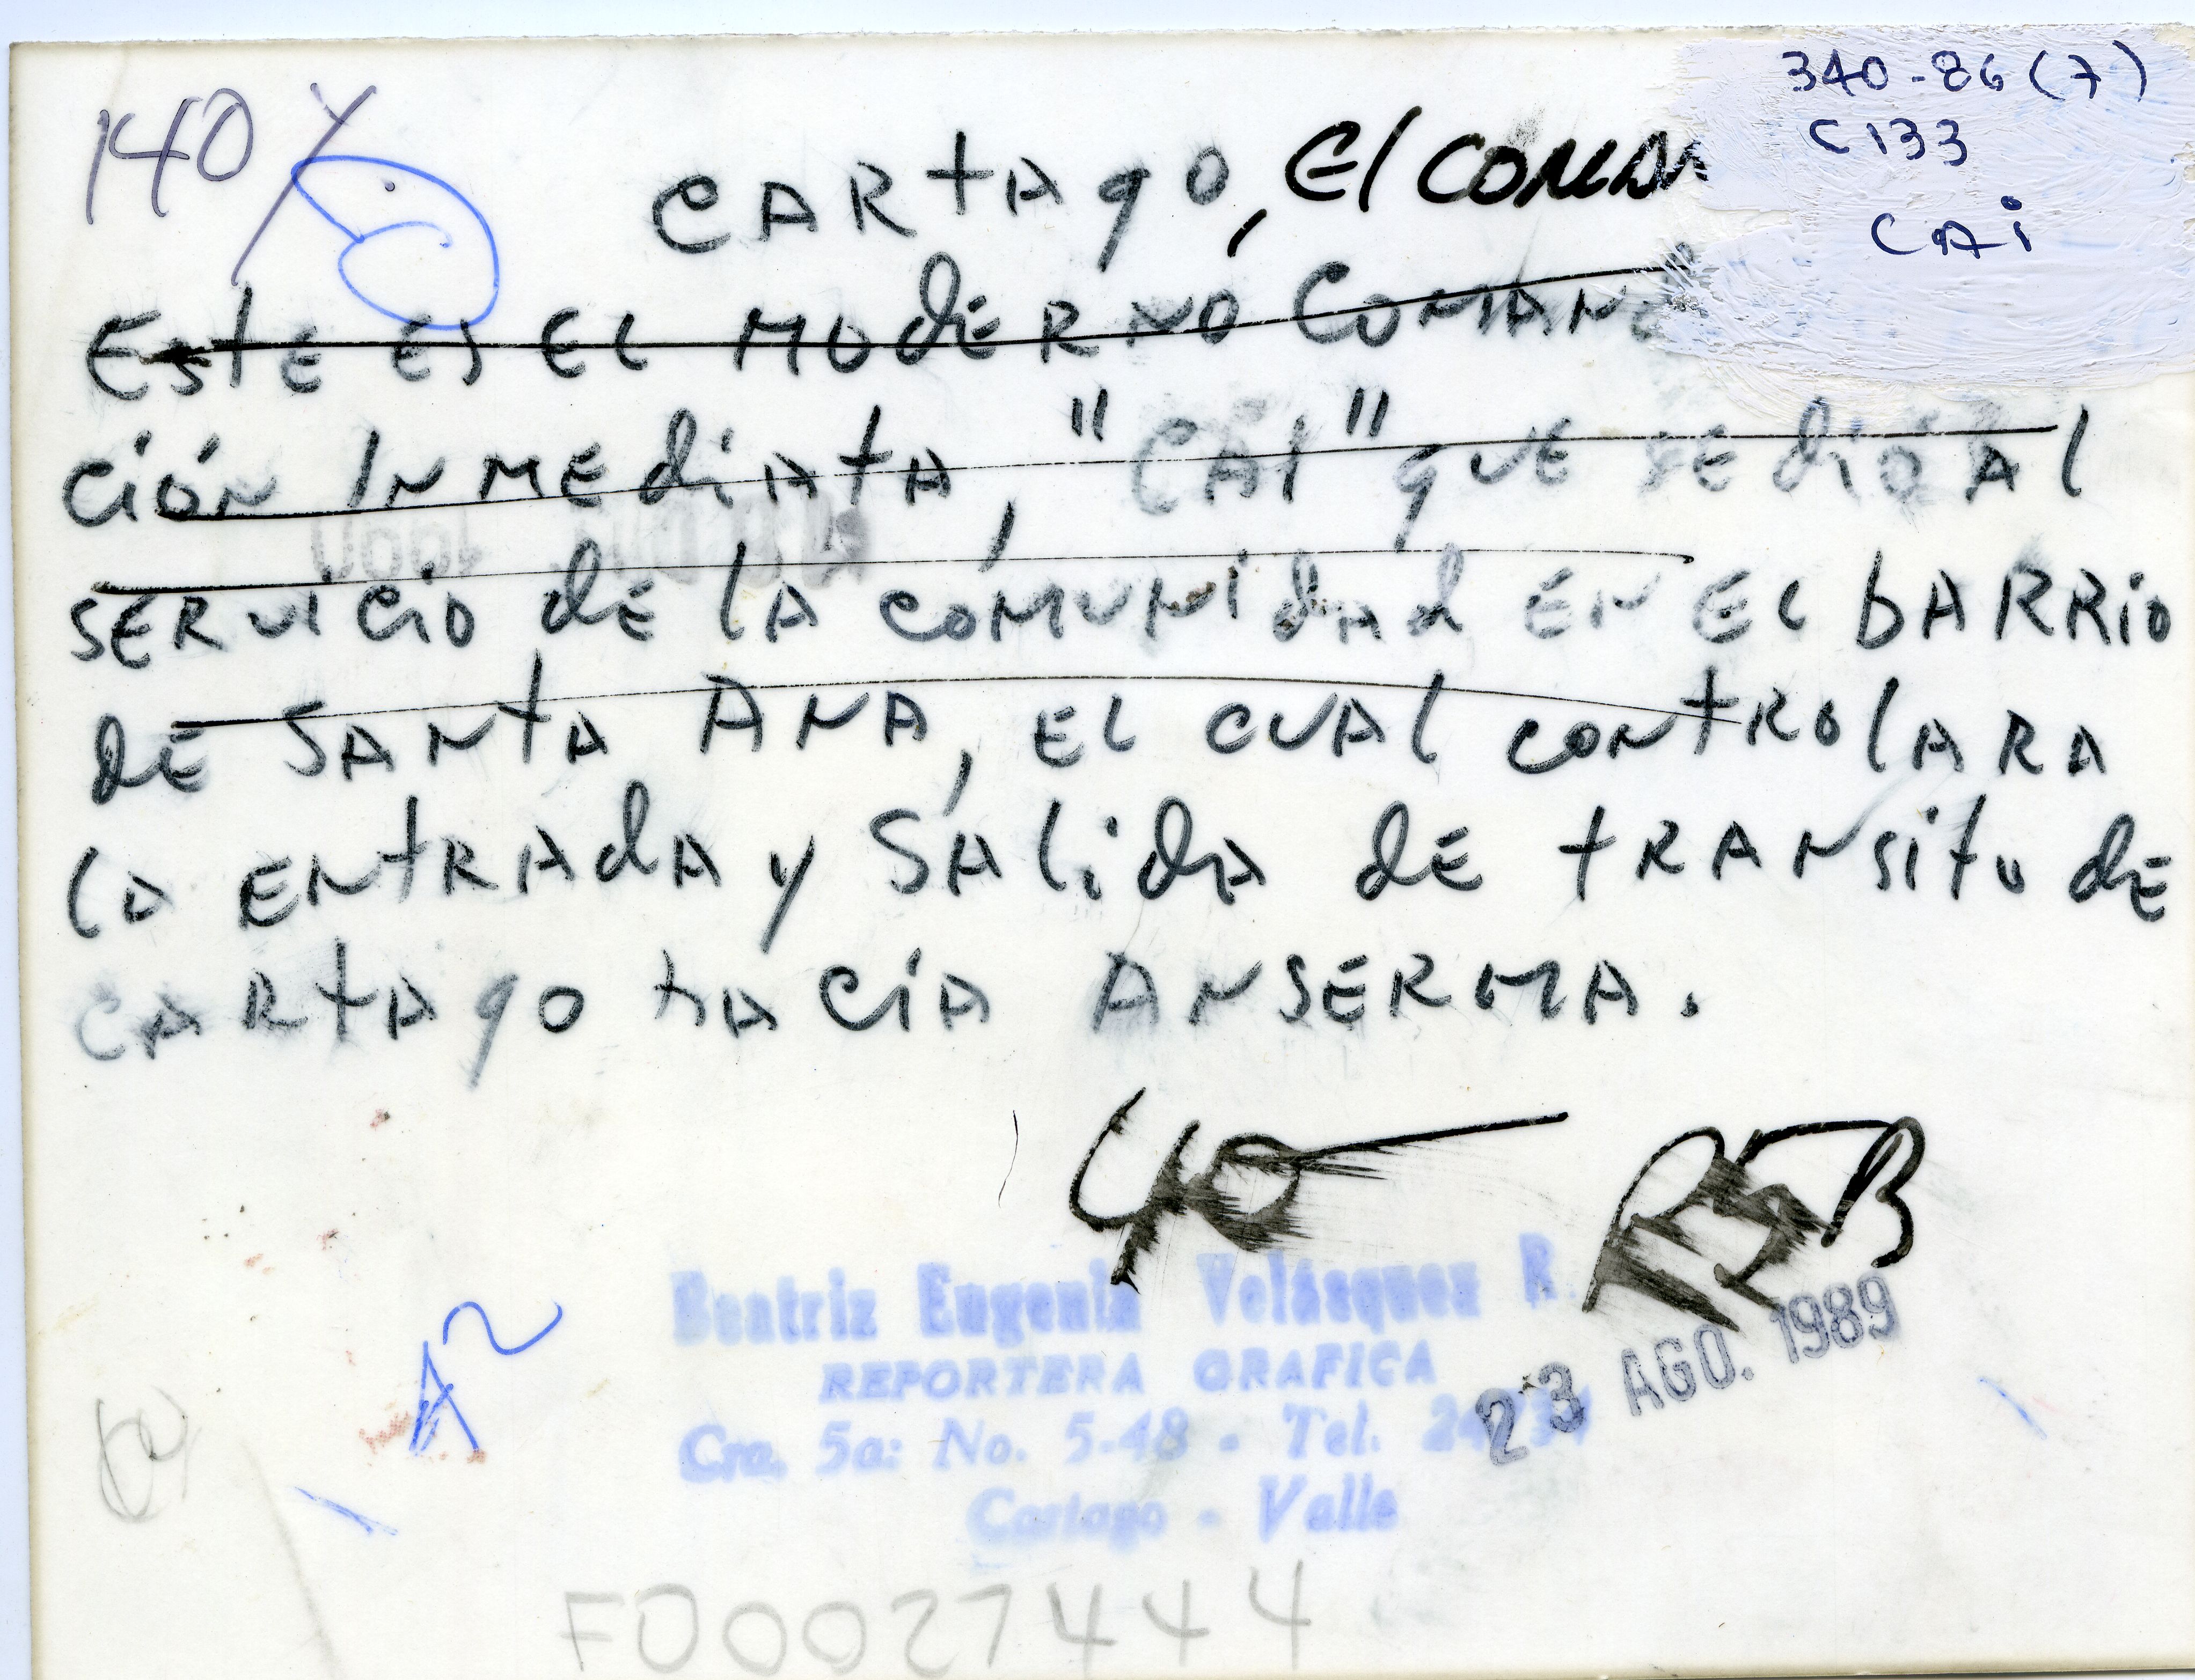 340-86 (7)
C 133
CAi
140
CARtAgo, El COMAN
EstE ES EL MOdERNO COMAND
CiÓN INMEdiAtA, "CAI" QUE SE diÓ Al
SERViCiO dE lA COMUNidad EN EL bARRio
dE SANtA ANA, EL CUAL CONtROlARA
la ENtRAdA y SAlidA dE tRANsito dE
CARtAgo hACiA ANSERMA.
Beatriz Eugenia Velásquez R.
REPORTERA GRAFICA
23 AGO. 1989
Cra. 5a: No. 5-48 - Tel.
Cartago - Valle
F00027444